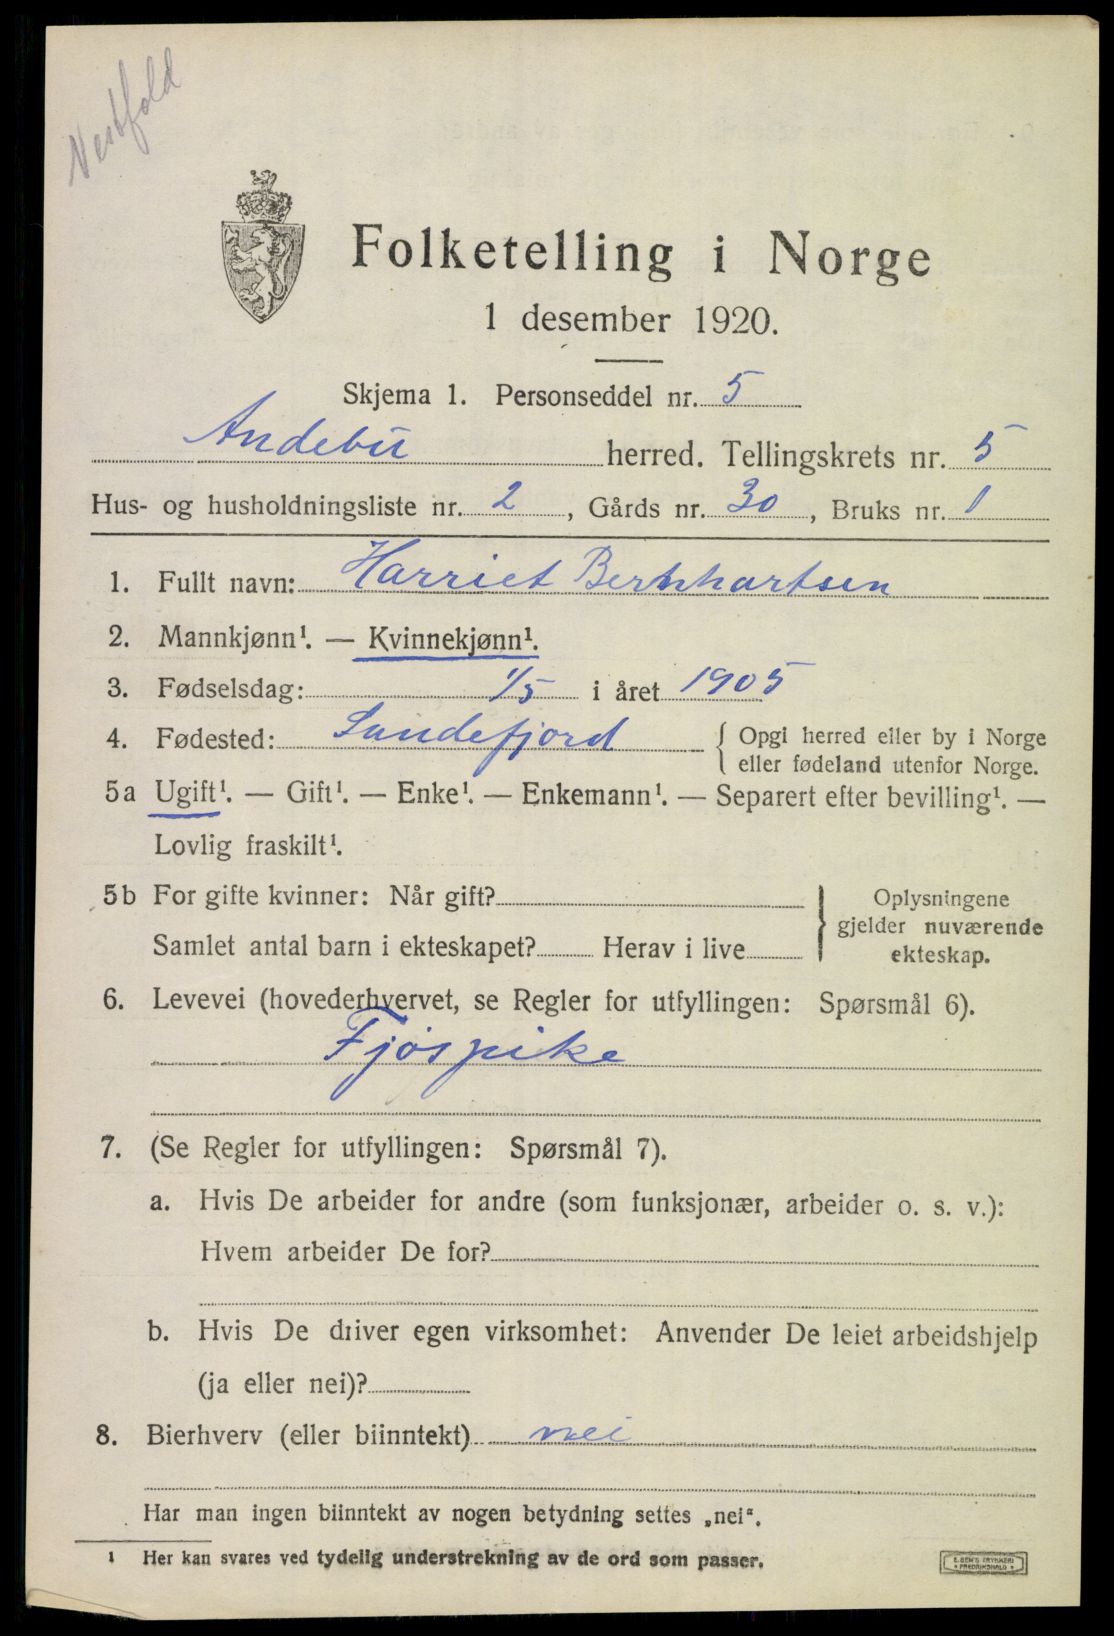 Vestfold
Folketelling i Norge
1 desember 1920.
Skjema 1. Personseddel nr. 5
Andebu herred. Tellingskrets nr. 5
Hus- og husholdningsliste nr. 2, Gårds nr. 30, Bruks nr. 1
1. Fullt navn: Harriet Bernhartsen
2. Mannkjønn¹. — Kvinnekjønn¹.
3. Fødselsdag: 1/5 i året 1905
4. Fødested: Sandefjord { Opgi herred eller by i Norge
eller fødeland utenfor Norge.
5a Ugift¹. — Gift¹. — Enke¹. — Enkemann¹. — Separert efter bevilling¹. —
Lovlig fraskilt¹.
5b For gifte kvinner: Når gift? } Oplysningene
gjelder nuværende
Samlet antal barn i ekteskapet? Herav i live
ekteskap.
6. Levevei (hovederhvervet, se Regler for utfyllingen: Spørsmål 6).
Fjøspike
7. (Se Regler for utfyllingen: Spørsmål 7).
a. Hvis De arbeider for andre (som funksjonær, arbeider o. s. v.):
Hvem arbeider De for?
b. Hvis De driver egen virksomhet: Anvender De leiet arbeidshjelp
(ja eller nei)?
8. Bierhverv (eller biinntekt) nei
Har man ingen biinntekt av nogen betydning settes „nei“.
¹ Her kan svares ved tydelig understrekning av de ord som passer.
E. SEM'S TRYKKERI
FREDRIKSHALD